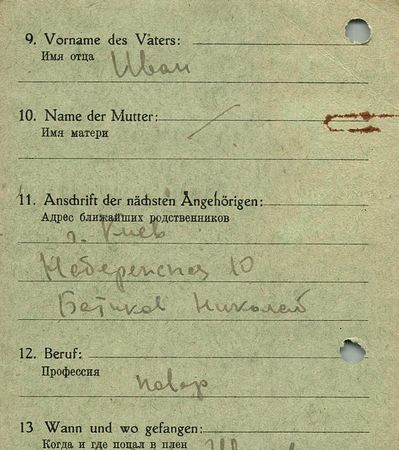 9. Vorname des Vaters:
Имя отца Иван
10. Name der Mutter:
Имя матери
11. Anschrift der nächsten Angehörigen:
Адрес ближайших родственников
г. Киев
Набережная 10
Николай
12. Beruf:
Профессия повар
13 Wann und wo gefangen:
Когда и где попал в плен